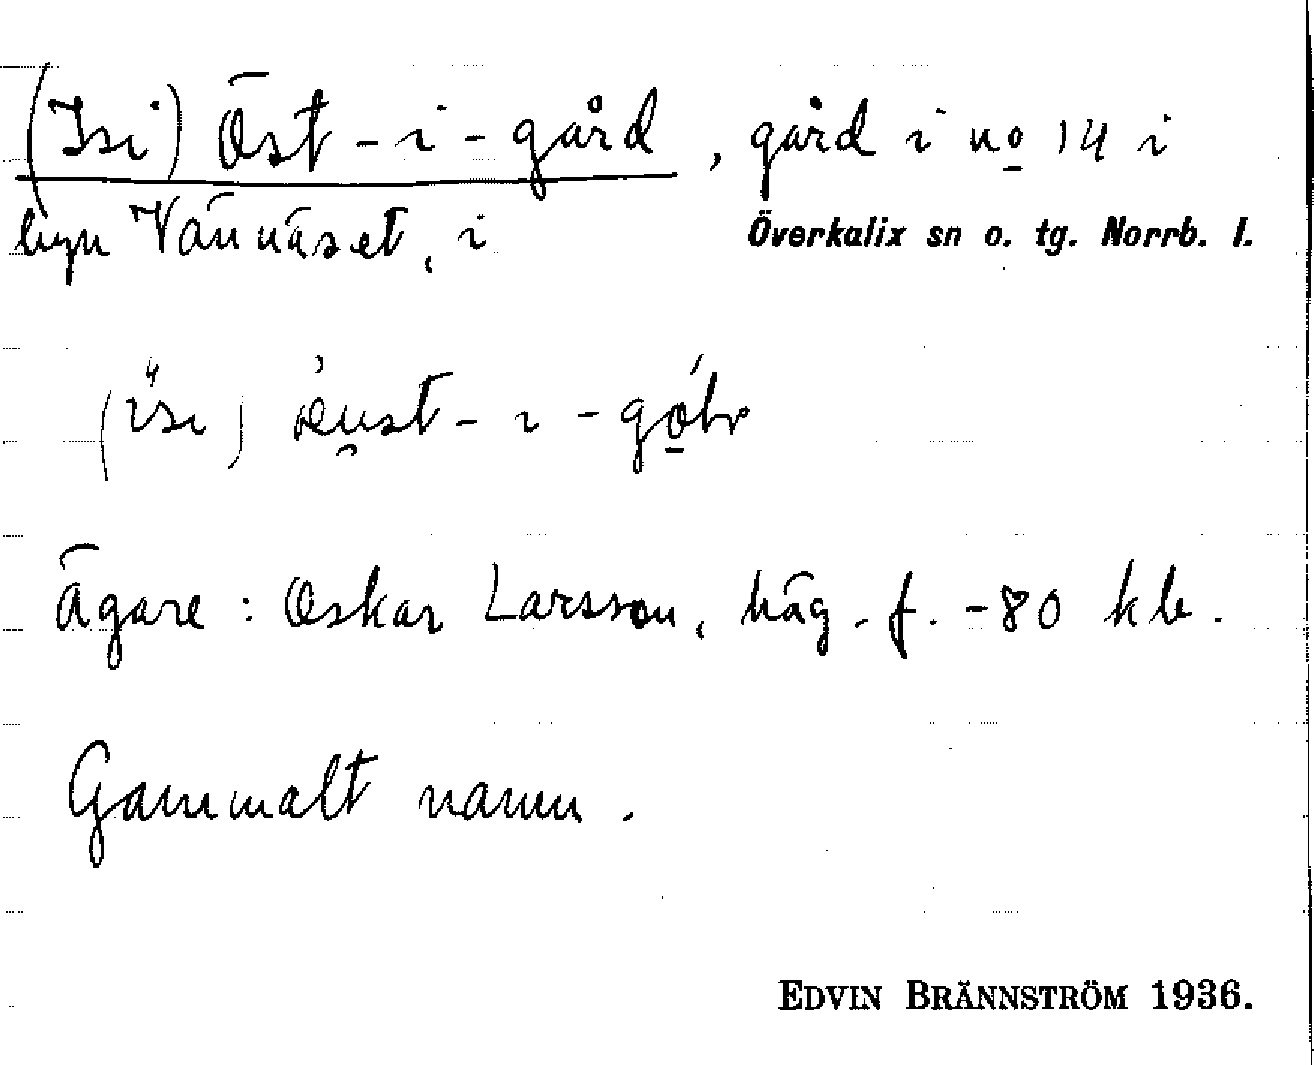 (Isi) Öst-i-gård, gård i no 14 i
byn Vännäset, i Överkalix sn o. tg. Norrb. l.
(isi) öust-i-go̱
Ägare: Oskar Larsson, häg. f. -80 kb.
Gammalt namn.
EDVIN BRÄNNSTRÖM 1936.